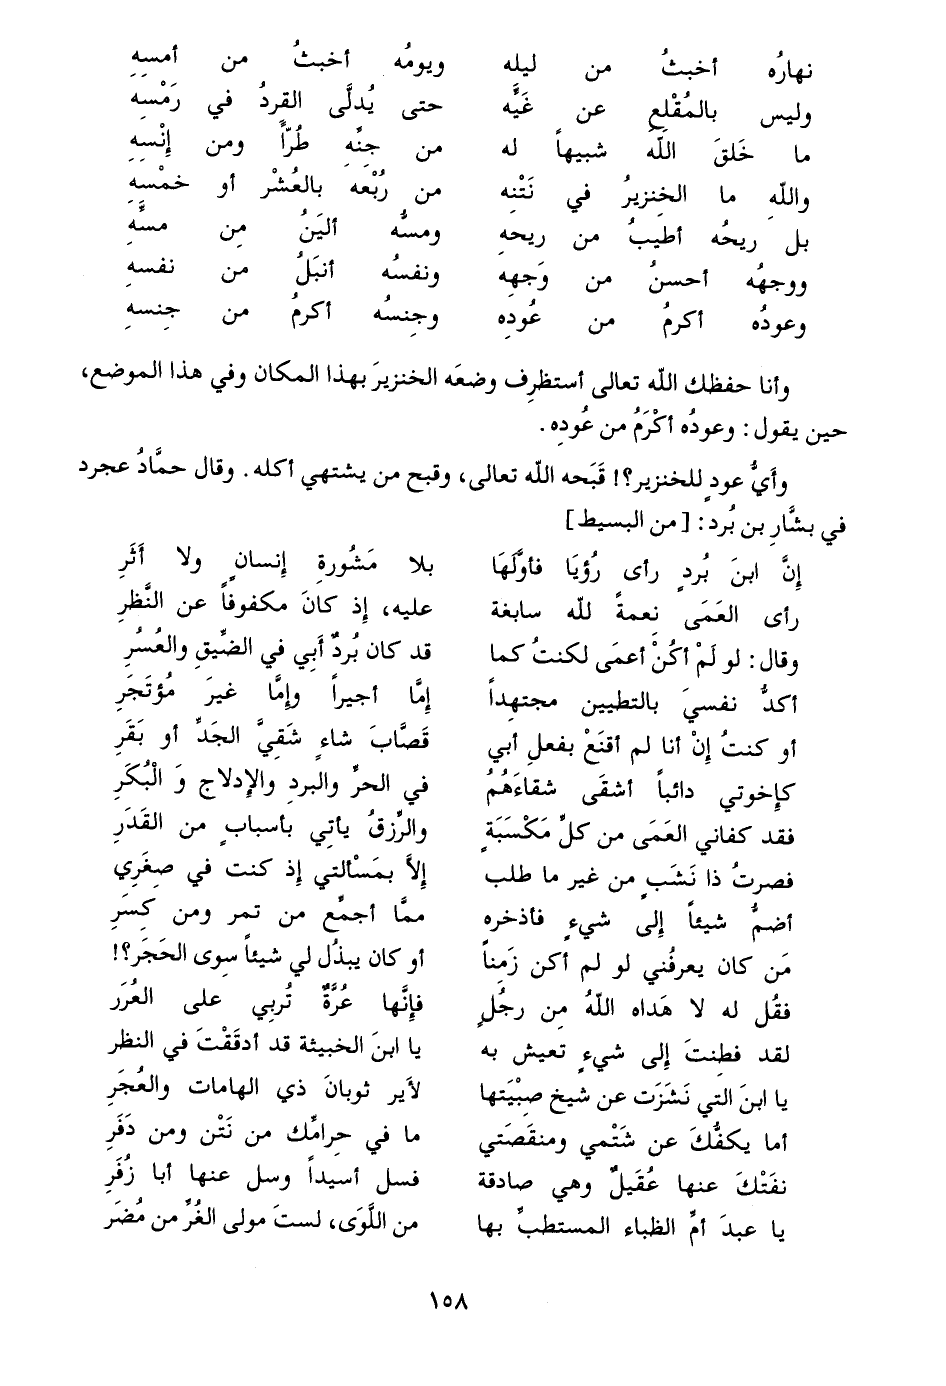 نهارُه أخبثُ من ليلِهِ ويومُه أخبثُ من أمسِهِ
وليس بالمُقْلِعِ عن غَيِّه حتى يُدلَّى القِردُ في رَمْسِهِ
ما خَلقَ اللّه شبيهاً له من جِنِّهِ طُرّاً ومن إنْسِهِ
واللّهِ ما الخنزيرُ في نَتْنِه من رُبْعه بالعُشْر أو خمْسِهِ
بل ريحُه أطيبُ من ريحهِ ومسُّه أليَنُ مِن مسِّهِ
ووجهُه أحسنُ من وَجههِ ونفسُه أنبَلُ من نفسهِ
وعودُه أكرمُ من عُودِه وجِنسُه أكرمُ من جِنسهِ
وأنا حفظك اللّه تعالى أستظرِف وضعَه الخنزيرَ بهذا المكان وفي هذا الموضع،
حين يقول: وعودُه أكْرَمُ من عُودِه.
وأيُّ عودٍ للخنزير؟! قَبَحه اللّه تعالى، وقبح من يشتهي أكله. وقال حمَّادُ عجرد
في بشَّارِ بن بُرد: [من البسيط]
إنَّ ابنَ بُردٍ رأى رُؤيَا فأوَّلَهَا بلا مَشُورةِ إنسانٍ ولا أثَرِ
رأى العَمَى نعمةً للّه سابغة عليه، إذ كانَ مكفوفاً عن النَّظرِ
وقال: لو لَمْ أكُنْ أعمَى لكنتُ كما قد كان بُردٌ أبي في الضِّيقِ والعُسُرِ
أكدُّ نفسيَ بالتطيين مجتهداً إمَّا أجيراً وإمَّا غيرَ مُؤتَجَرِ
أو كنتُ إنْ أنا لم أقنَعْ بفعلِ أبي قَصَّابَ شاءٍ شَقِيَّ الجَدِّ أو بَقَرِ
كإخوتي دائباً أشقَى شقاءَهُمُ في الحرِّ والبردِ والإدلاج وَ الْبُكَرِ
فقد كفاني العَمَى من كلِّ مَكْسَبَةٍ والرِّزقُ يأتي بأسبابٍ من القَدَرِ
فصرتُ ذا نَشَبٍ من غير ما طلب إلاَّ بمَسْألتي إذ كنت في صِغَرِي
أضمُّ شيئاً إلى شيءٍ فأذخره ممَّا أجمِّع من تمر ومن كِسَرِ
مَن كان يعرفُني لو لم أكن زَمِناً أو كان يبذُل لي شيئاً سِوى الحَجَرِ؟!
فقُل له لا هَداه اللّهُ مِن رجُلٍ فإنَّها عُرَّةٌ تُربي على العُرَر
لقد فطِنتَ إلى شيءٍ تعيش به يا ابنَ الخبيثة قد أدقَقْتَ في النظر
يا ابنَ التي نَشَزَت عن شيخ صِبْيَتها لأير ثوبانَ ذي الهامات والعُجَرِ
أما يكفُّكَ عن شَتْمي ومنقَصَتي ما في حِرامِّك من نَتْن ومن دَفَرِ
نفَتْكَ عنها عُقَيلٌ وهي صادقة فسل أسيداً وسل عنها أبا زُفَرِ
يا عبدَ أمِّ الظباء المستطبِّ بها من اللَّوَى، لستَ مولى الغُرِّ من مُضَر
١٥٨